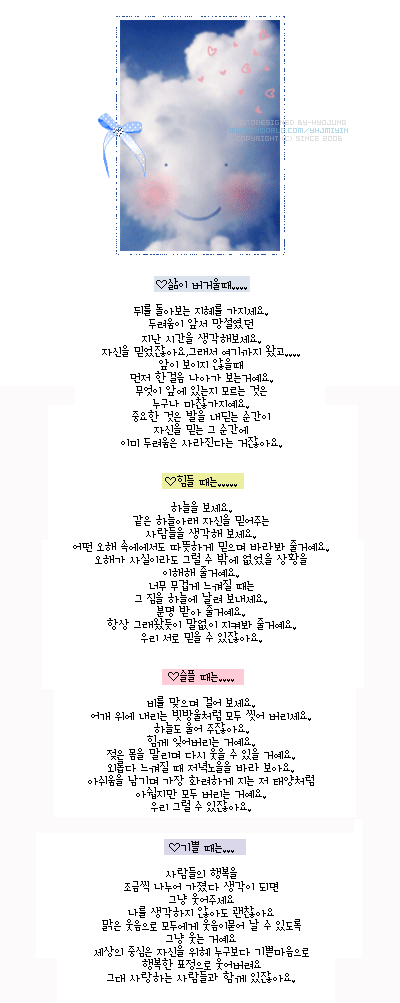 DESIGNED BY-HYOJUNG
COPYRIGHT (C) SINCE 2006
♡삶이 버거울때....
뒤를 돌아보는 지혜를 가지세요.
두려움이 앞서 망설였던
지난 시간을 생각해보세요.
자신을 믿었잖아요.그래서 여기까지 왔고....
앞이 보이지 않을때
먼저 한걸음 나아가 보는거예요.
무엇이 앞에 있는지 모르는 것은
누구나 마찬가지예요.
중요한 것은 발을 내딛는 순간이
자신을 믿는 그 순간에
이미 두려움은 사라진다는 거잖아요.
♡힘들 때는.....
하늘을 보세요.
같은 하늘아래 자신을 믿어주는
사람들을 생각해 보세요.
어떤 오해 속에에서도 따뜻하게 믿으며 바라봐 줄거예요.
오해가 사실이라도 그럴 수 밖에 없었을 상황을
이해해 줄거예요.
너무 무겁게 느껴질 때는
그 짐을 하늘에 날려 보내세요.
분명 받아 줄거예요.
항상 그래왔듯이 말없이 지켜봐 줄거예요.
우리 서로 믿을 수 있잖아요.
♡슬플 때는....
비를 맞으며 걸어 보세요.
어깨 위에 내리는 빗방울처럼 모두 씻어 버리세요.
하늘도 울어 주잖아요.
힘께 잊어버리는 거예요.
젖은 몸을 말리며 다시 웃을 수 있을 거예요.
외롭다 느껴질 때 저녁노을을 바라 보아요.
아쉬움을 남기며 가장 화려하게 지는 저 태양처럼
아쉽지만 모두 버리는 거예요.
우리 그럴 수 있잖아요.
♡기쁠 때는...
사람들의 행복을
조금씩 나누어 가졌다 생각이 되면
그냥 웃어주세요
나를 생각하지 않아도 괜찮아요
맑은 웃음으로 모두에게 웃음이묻어 날 수 있도록
그냥 웃는 거예요
세상의 중심은 자신을 위해 누구보다 기쁜마음으로
행복한 표정으로 웃어버려요
그대 사랑하는 사람들과 함께 있잖아요.